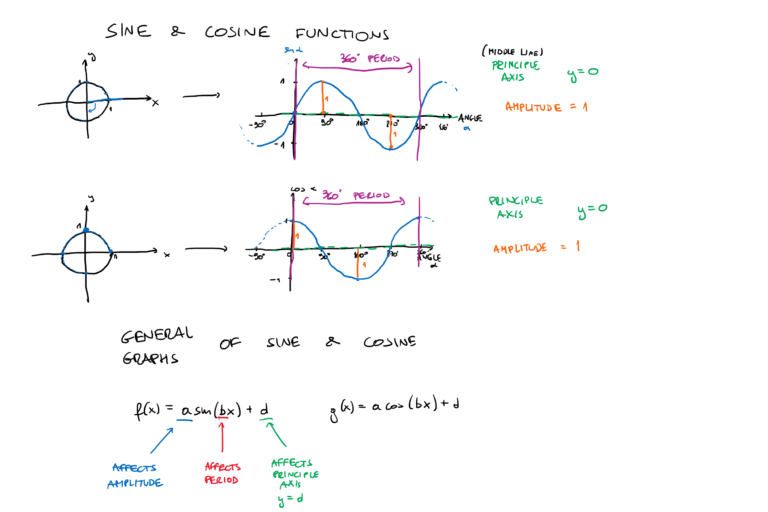 SINE & COSINE FUNCTIONS
y
1
1
x
sin α
360° PERIOD
1
1
1
-1
-90°
0
90°
180°
270°
360°
ANGLE
α
(MIDDLE LINE)
PRINCIPLE
AXIS
y=0
AMPLITUDE = 1
y
1
1
x
cos α
360° PERIOD
1
1
1
-1
-90°
0
90°
180°
270°
360°
ANGLE
α
PRINCIPLE
AXIS
y=0
AMPLITUDE = 1
GENERAL
GRAPHS
OF SINE & COSINE
f(x) = a sin(bx) + d
g(x) = a cos(bx) + d
AFFECTS
AMPLITUDE
AFFECTS
PERIOD
AFFECTS
PRINCIPLE
AXIS
y = d